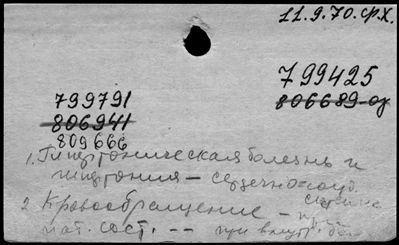 11.9.70.фХ.
799425
806689-оз
799791
806941
809666
1. Гипертоническая болезнь и
гипертония – сердечно-сосуд.
система
2 Кровообращение – при
пат. сост. -- при внутр. бол